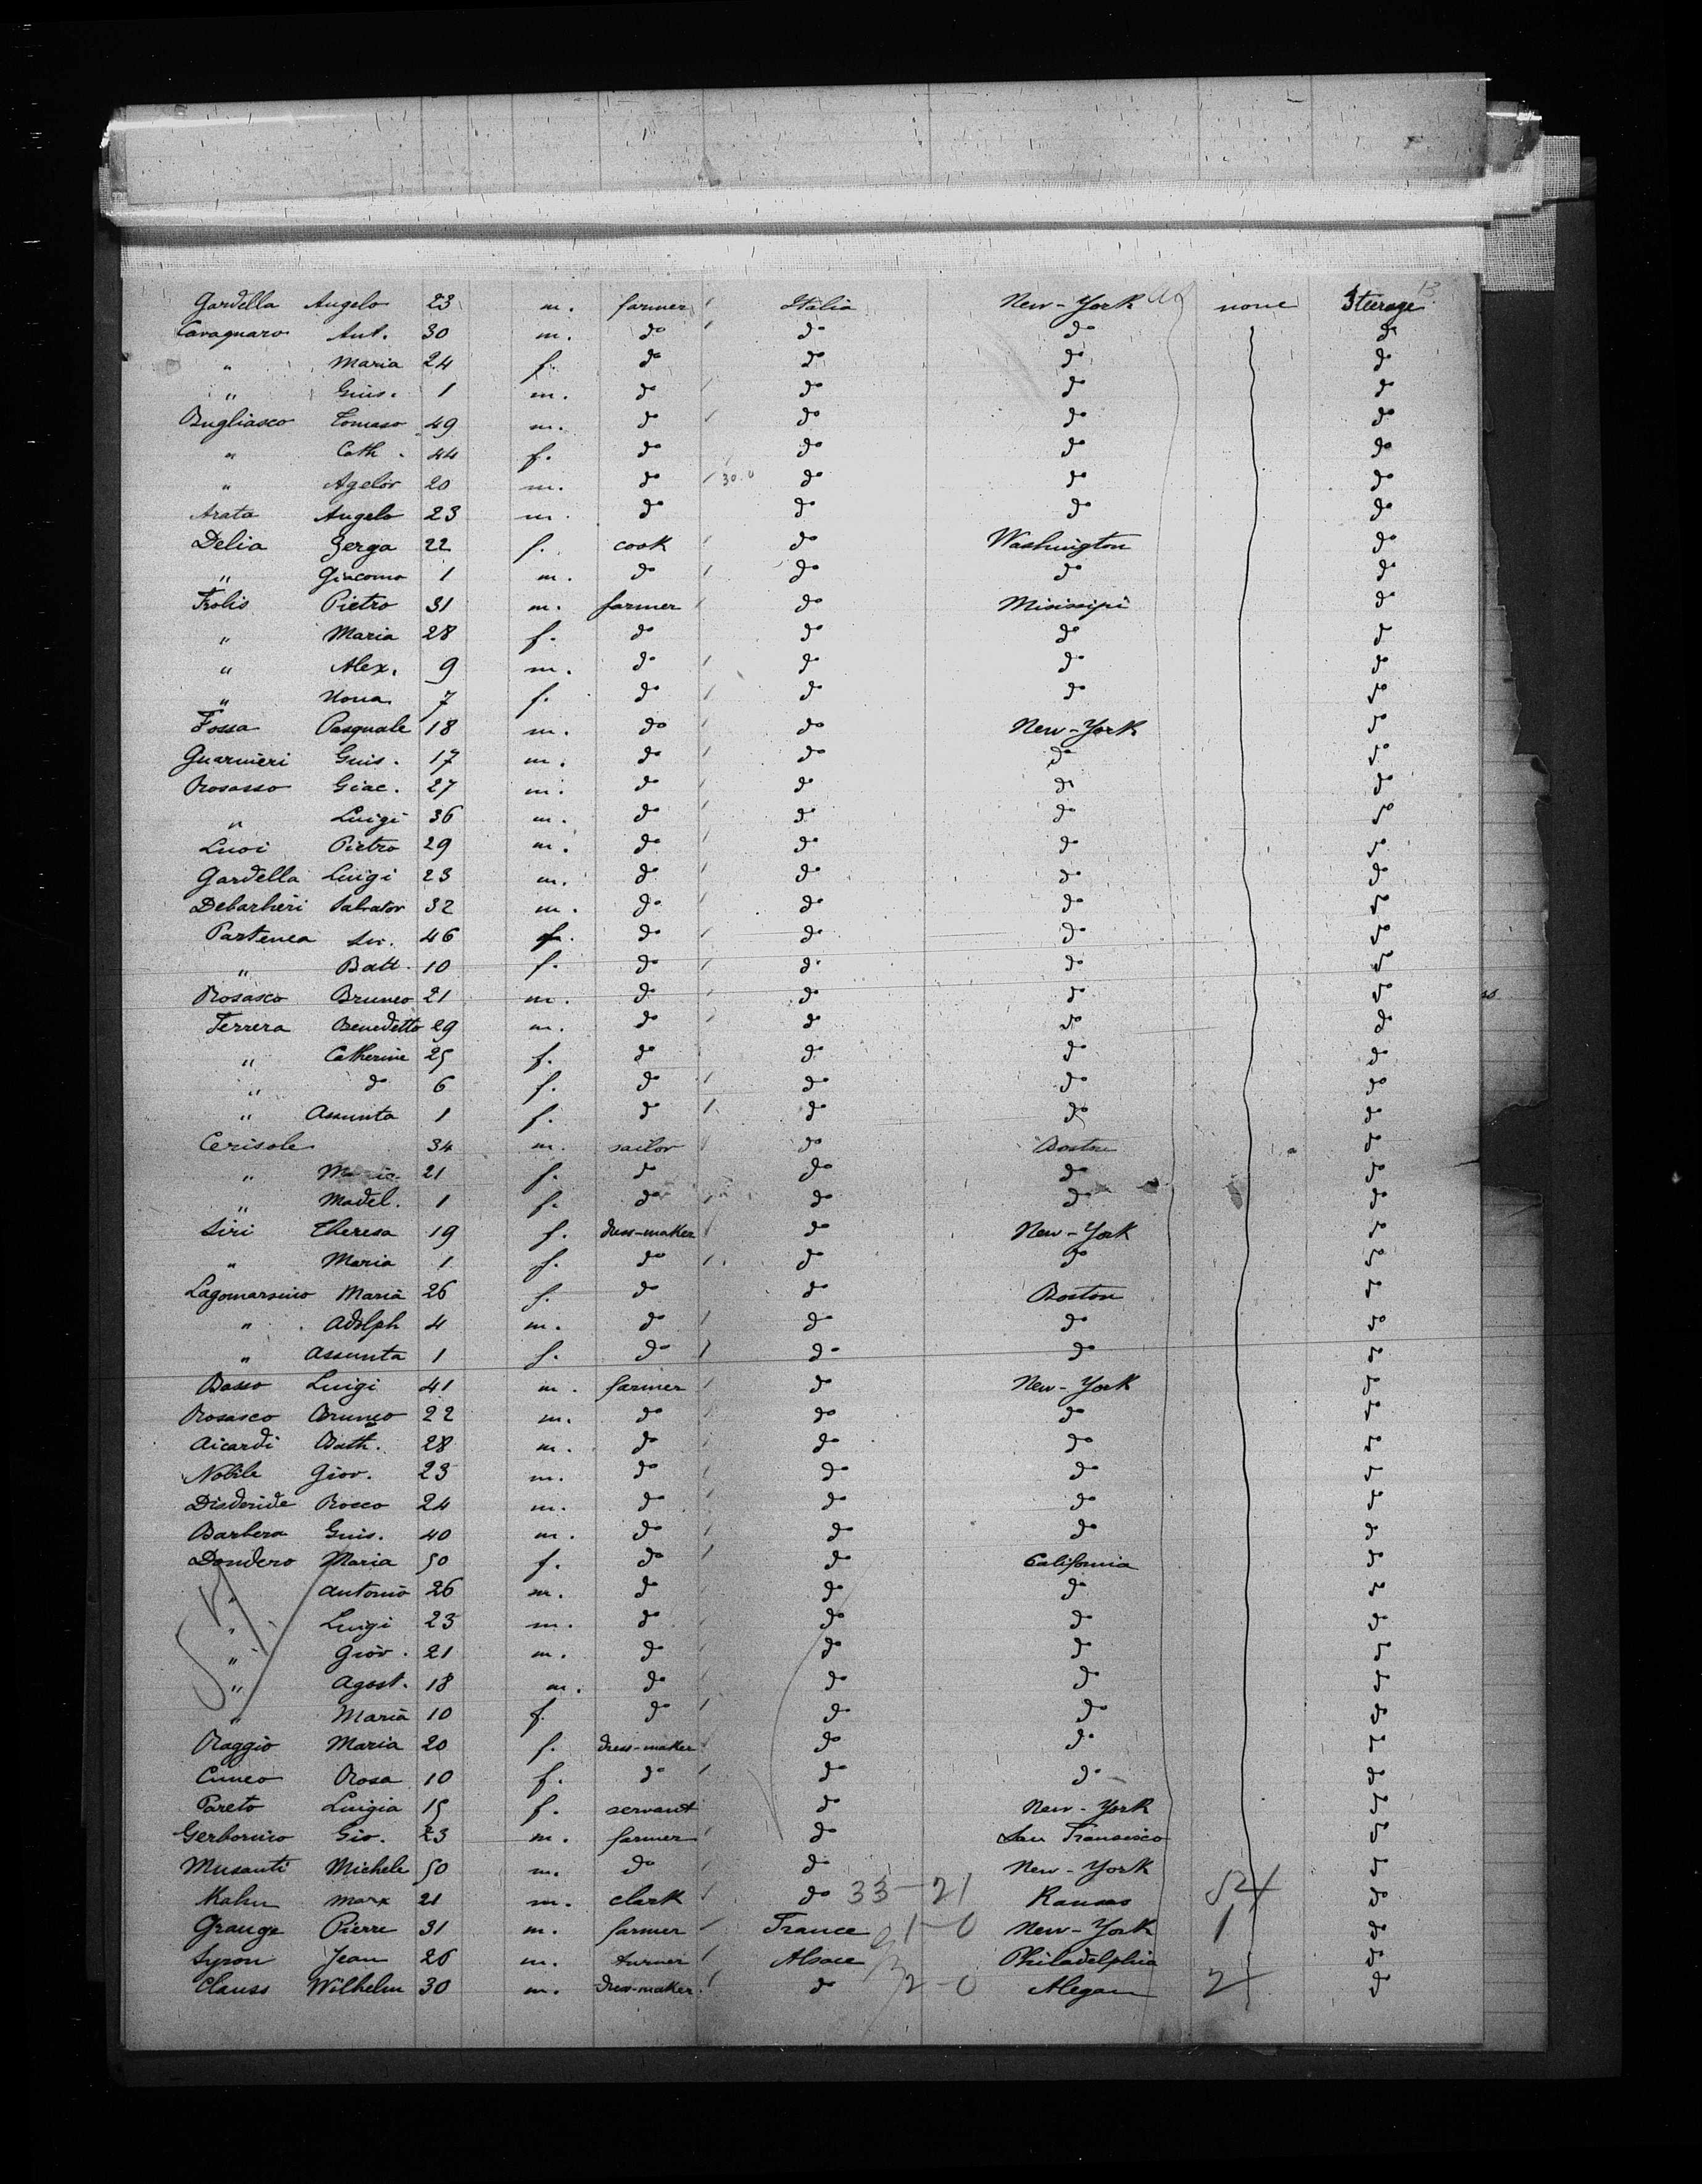 13.
Gardella Angelo 23 m. farmer Italia New-York none Steerage
Cavagnaro Ant. 30 m. do do do do
" Maria 24 f. do do do do
" Gius. 1 m. do do do do
Bugliasco Tomaso 49 m. do do do do
" Cath. 44 f. do do do do
" Agelor 20 m. do 30.0 do do do
Arata Angelo 23 m. do do do do
Delia Gerga 22 f. cook do Washington do
" Giacomo 1 m. do do do do
Frolis Pietro 31 m. farmer do Misissipi do
" Maria 28 f. do do do do
" Alex. 9 m. do do do do
" Nona 7 f. do do do do
Fossa Pasquale 18 m. do do New-York do
Guarnieri Guis. 17 m. do do do do
Rosasso Giac. 27 m. do do do do
" Luigi 36 m. do do do do
Pietro 29 m. do do do do
Gardella Luigi 23 m. do do do do
Debarbieri Salvator 32 m. do do do do
Partenea 46 do do do do
" Batt. 10 f. do do do do
Rosasco Bruneo 21 m. do do do do
Ferrera Benedetto 29 m. do do do do
" Catherine 25 f. do do do do
" do 6 f. do do do do
" Assunta 1 f. do do do do
Cerisole 34 m. sailor do Boston do
" Maria 21 f. do do do do
" Madel. 1 f. do do do do
Siri Theresa 19 f. dress-maker do New-York do
" Maria 1 f. do do do do
Lagomarsino Maria 26 f. do do Boston do
" Adolph 4 m. do do do do
" Assunta 1 f. do do do do
Basso Luigi 41 m. farmer do New-York do
Rosasco Bruneo 22 m. do do do do
Aicardi Bath. 28 m. do do do do
Nobile Giov. 23 m. do do do do
Disderide Rocco 24 m. do do do do
Barbera Guis. 40 m. do do do do
Dondero Maria 50 f. do do California do
" Antonio 26 m. do do do do
" Luigi 23 m. do do do do
" Giov. 21 m. do do do do
" Agost. 18 m. do do do do
" Maria 10 f. do do do do
Raggio Maria 20 f. dress-maker do do do
Cuneo Rosa 10 f. do do do do
Pareto Luigia 15 f. servant do New-York do
Gerbonino Gio. 23 m. farmer do San Fransisco do
Musanti Michele 50 m. do do New-York do
Kahn Marx 21 m. clark do 33-21 Kansas 54 do
Grange Pierre 31 m. farmer France 1-0 New-York 1 do
Syron Jean 26 m. turner Alsace Philadelphia do
Clauss Wilhelm 30 m. dress-maker do 2-0 Alegan 2 do